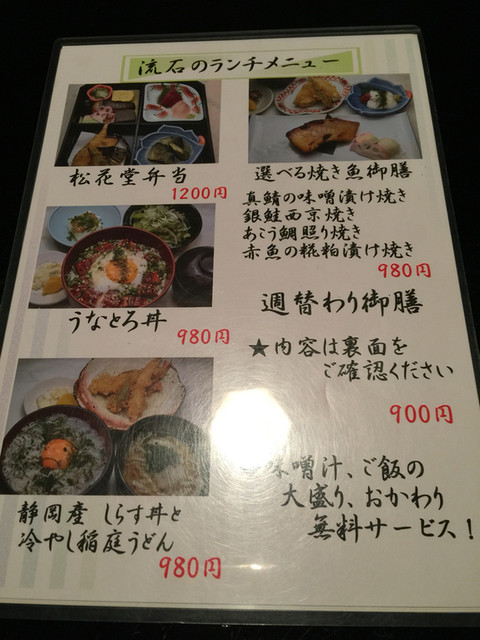 流石のランチメニュー
松花堂弁当
1200円
うなとろ丼
980円
静岡産 しらす丼と
冷やし稲庭うどん
980円
選べる焼き魚御膳
真鯖の味噌漬け焼き
銀鮭西京焼き
あこう鯛照り焼き
赤魚の糀粕漬け焼き
980円
週替わり御膳
★内容は裏面を
ご確認ください
900円
味噌汁、ご飯の
大盛り、おかわり
無料サービス！